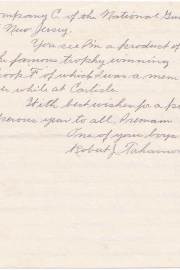 Company C of the National Gu
New Jersey.
You see I'm a product of
the famous trophy winning
oop F of which I was a mem
er while at Carlisle.
With best wishes for a pr
perous year to all, I remain
One of your boys
Robert J.